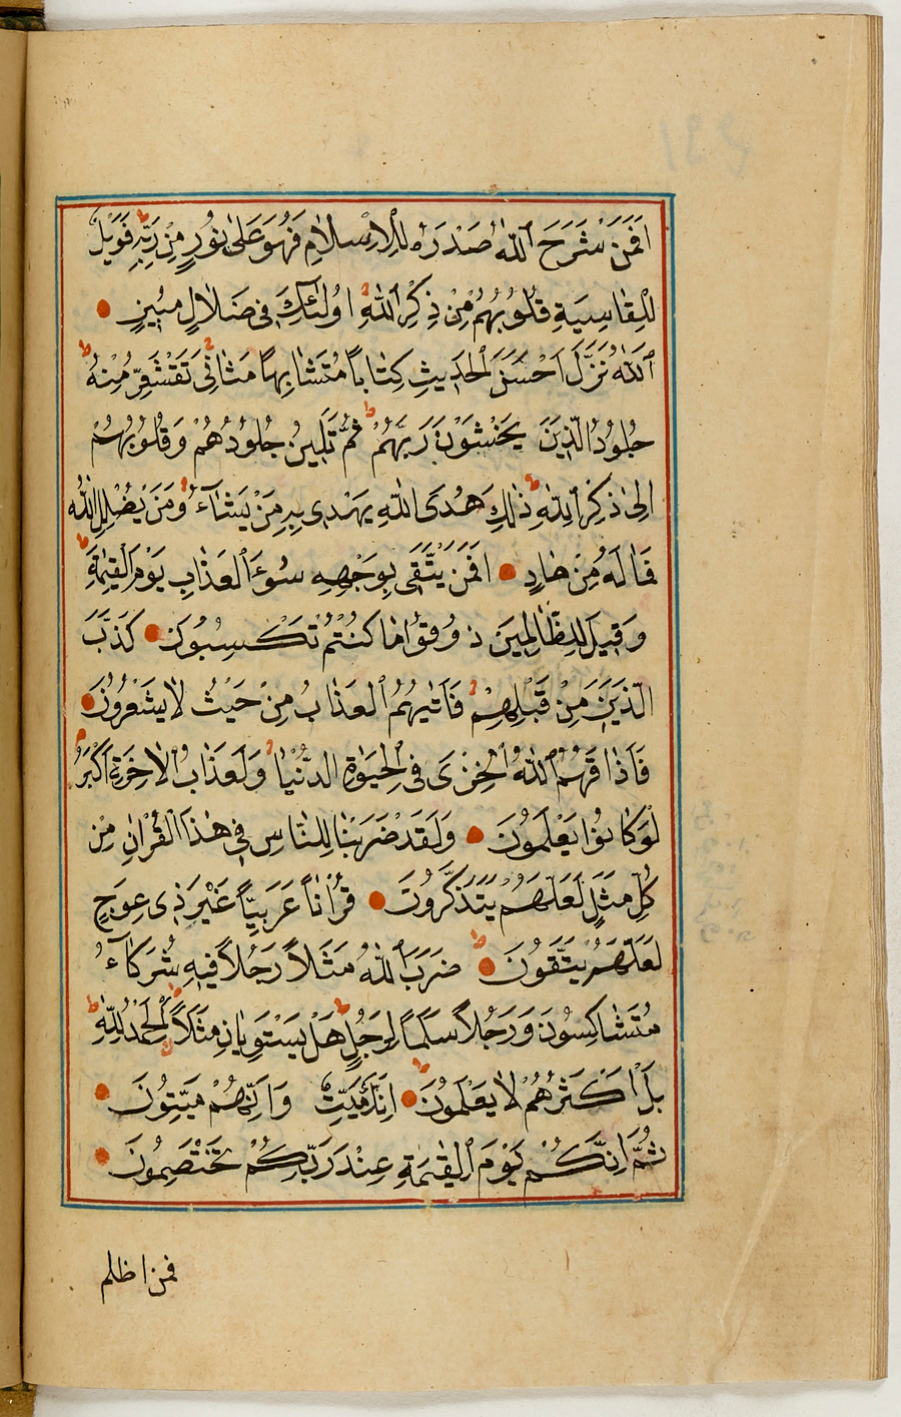 اَفَمَنْ شَرَحَ ٱللّٰهُ صَدْرَهُ لِلْاِسْلَامِ فَهُوَ عَلٰى نُورٍ مِنْ رَبِّهِ فَوَيْلٌ
لِلْقَاسِيَةِ قُلُوبُهُمْ مِنْ ذِكْرِ ٱللّٰهِ اُولٰئِكَ فِى ضَلَالٍ مُبِينٍ
ٱَللّٰهُ نَزَّلَ اَحْسَنَ ٱلْحَدِيثِ كِتَاباً مُتَشَابِهاً مَثَانِىَ تَقْشَعِرُّ مِنْهُ
جُلُودُ الَّذِينَ يَخْشَوْنَ رَبَّهُمْ ثُمَّ تَلِينُ جُلُودُهُمْ وَقُلُوبُهُمْ
اِلٰى ذِكْرِ ٱللّٰهِ ذٰلِكَ هُدَى ٱللّٰهِ يَهْدِى بِهِ مَنْ يَشَآءُ وَمَنْ يُضْلِلِ ٱللّٰهُ
فَمَا لَهُ مِنْ هَادٍ اَفَمَنْ يَتَّقِى بِوَجْهِهِ سُوءَ ٱلْعَذَابِ يَوْمَ ٱلْقِيٰمَةِ
وَقِيلَ لِلظَّالِمِينَ ذُوقُوا مَا كُنْتُمْ تَكْسِبُونَ كَذَّبَ
الَّذِينَ مِنْ قَبْلِهِمْ فَاَتٰيهُمُ ٱلْعَذَابُ مِنْ حَيْثُ لَا يَشْعُرُونَ
فَاَذَاقَهُمُ ٱللّٰهُ ٱلْخِزْىَ فِى ٱلْحَيٰوةِ الدُّنْيَا وَلَعَذَابُ ٱلْاٰخِرَةِ اَكْبَرُ
لَوْ كَانُوا يَعْلَمُونَ وَلَقَدْ ضَرَبْنَا لِلنَّاسِ فِى هٰذَا ٱلْقُرْاٰنِ مِنْ
كُلِّ مَثَلٍ لَعَلَّهُمْ يَتَذَكَّرُونَ قُرْاٰناً عَرَبِيّاً غَيْرَ ذِى عِوَجٍ
لَعَلَّهُمْ يَتَّقُونَ ضَرَبَ ٱللّٰهُ مَثَلاً رَجُلاً فِيهِ شُرَكَآءُ
مُتَشَاكِسُونَ وَرَجُلاً سَلَماً لِرَجُلٍ هَلْ يَسْتَوِيَانِ مَثَلاً ٱلْحَمْدُ لِلّٰهِ
بَلْ اَكْثَرُهُمْ لَا يَعْلَمُونَ اِنَّكَ مَيِّتٌ وَاِنَّهُمْ مَيِّتُونَ
ثُمَّ اِنَّكُمْ يَوْمَ ٱلْقِيٰمَةِ عِنْدَ رَبِّكُمْ تَخْتَصِمُونَ
فمن اظلم